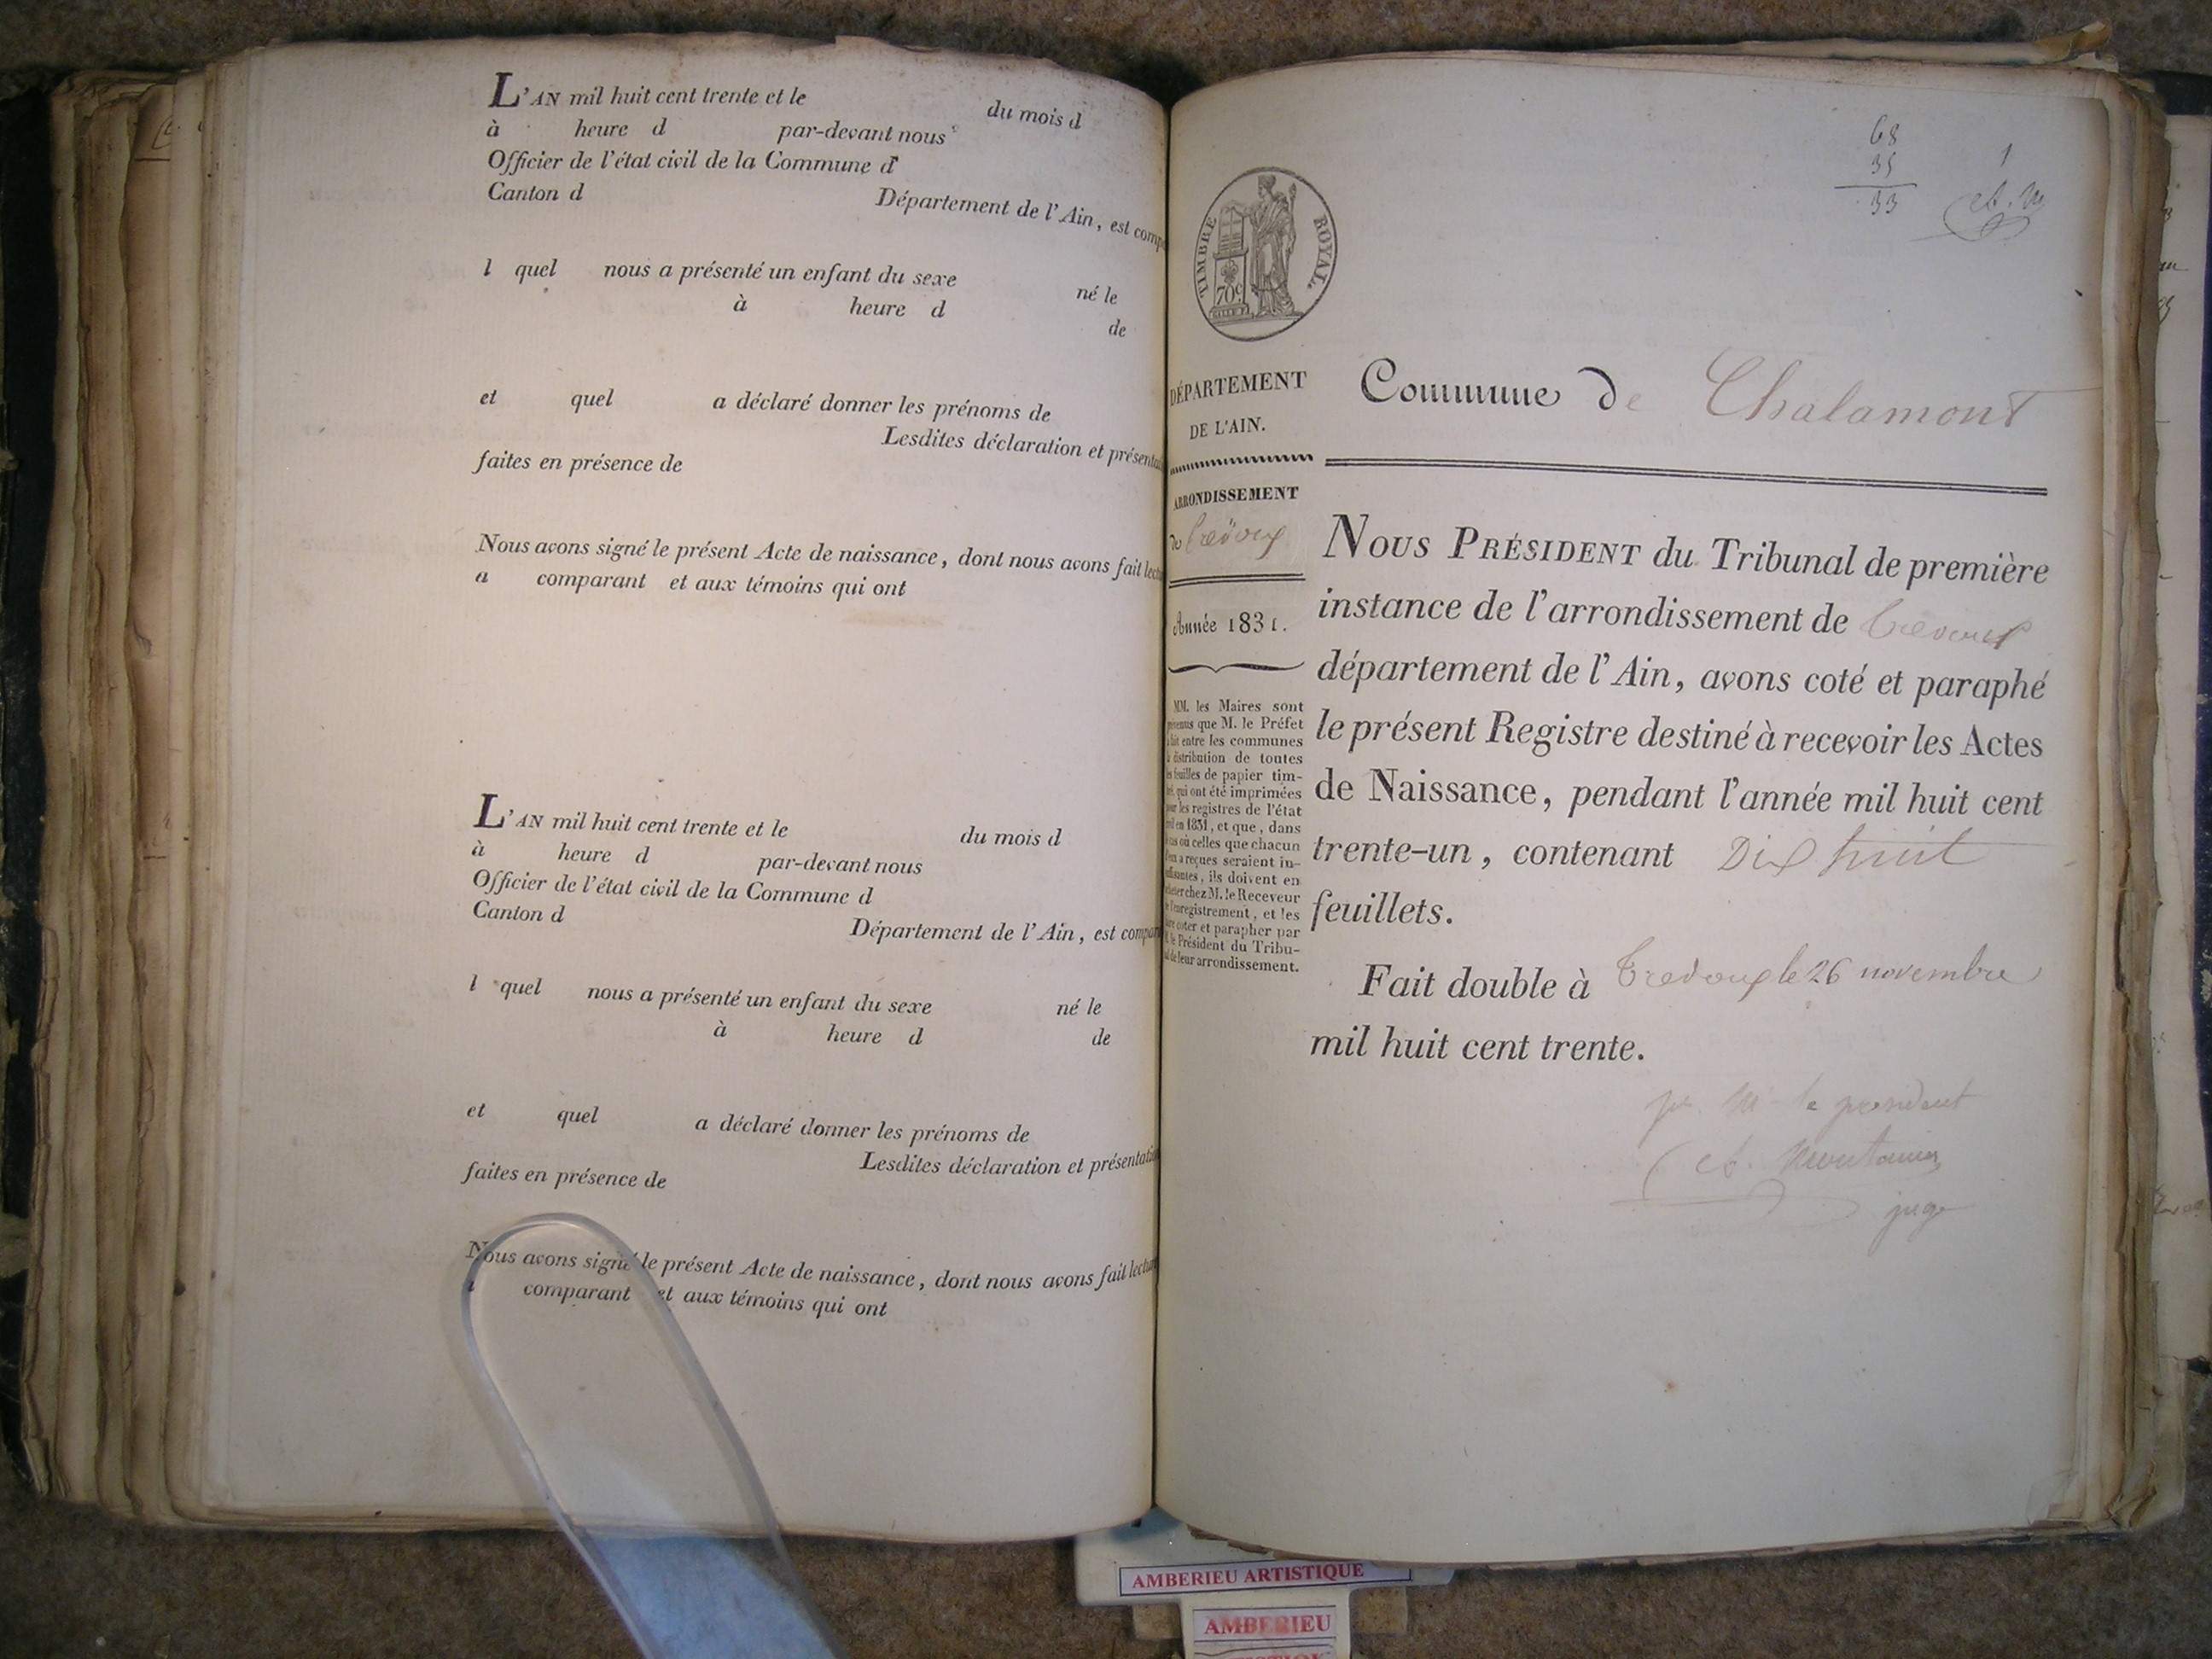 L'AN mil huit cent trente et le du mois d
à heure d par-devant nous
Officier de l'état civil de la Commune d
Canton d Département de l'Ain, est comp
l quel nous a présenté un enfant du sexe né le
à heure d de
et quel a déclaré donner les prénoms de
Lesdites déclaration et présenta
faites en présence de
Nous avons signé le présent Acte de naissance, dont nous avons fait lectu
a comparant et aux témoins qui ont
L'AN mil huit cent trente et le du mois d
à heure d par-devant nous
Officier de l'état civil de la Commune d
Canton d Département de l'Ain, est compar
l quel nous a présenté un enfant du sexe né le
à heure d de
et quel a déclaré donner les prénoms de
Lesdites déclaration et présentatio
faites en présence de
Nous avons signé le présent Acte de naissance, dont nous avons fait lectur
comparant et aux témoins qui ont
68
35
33
1
TIMBRE ROYAL.
70c
DÉPARTEMENT
DE L'AIN.
ARRONDISSEMENT
de Trévoux
Année 1831.
MM. les Maires sont
que M. le Préfet
fait entre les communes
distribution de toutes
feuilles de papier tim-
qui ont été imprimées
les registres de l'état
en 1831, et que, dans
où celles que chacun
a reçues seraient in-
, ils doivent en
chez M. le Receveur
enregistrement, et les
coter et parapher par
le Président du Tribu-
de leur arrondissement.
Commune de Chalamont
NOUS PRÉSIDENT du Tribunal de première
instance de l'arrondissement de Trevoux
département de l'Ain, avons coté et paraphé
le présent Registre destiné à recevoir les Actes
de Naissance, pendant l'année mil huit cent
trente-un, contenant Dix huit
feuillets.
Fait double à Trevoux le 26 novembre
mil huit cent trente.
pr. M. le president
juge
AMBERIEU ARTISTIQUE
AMBERIEU